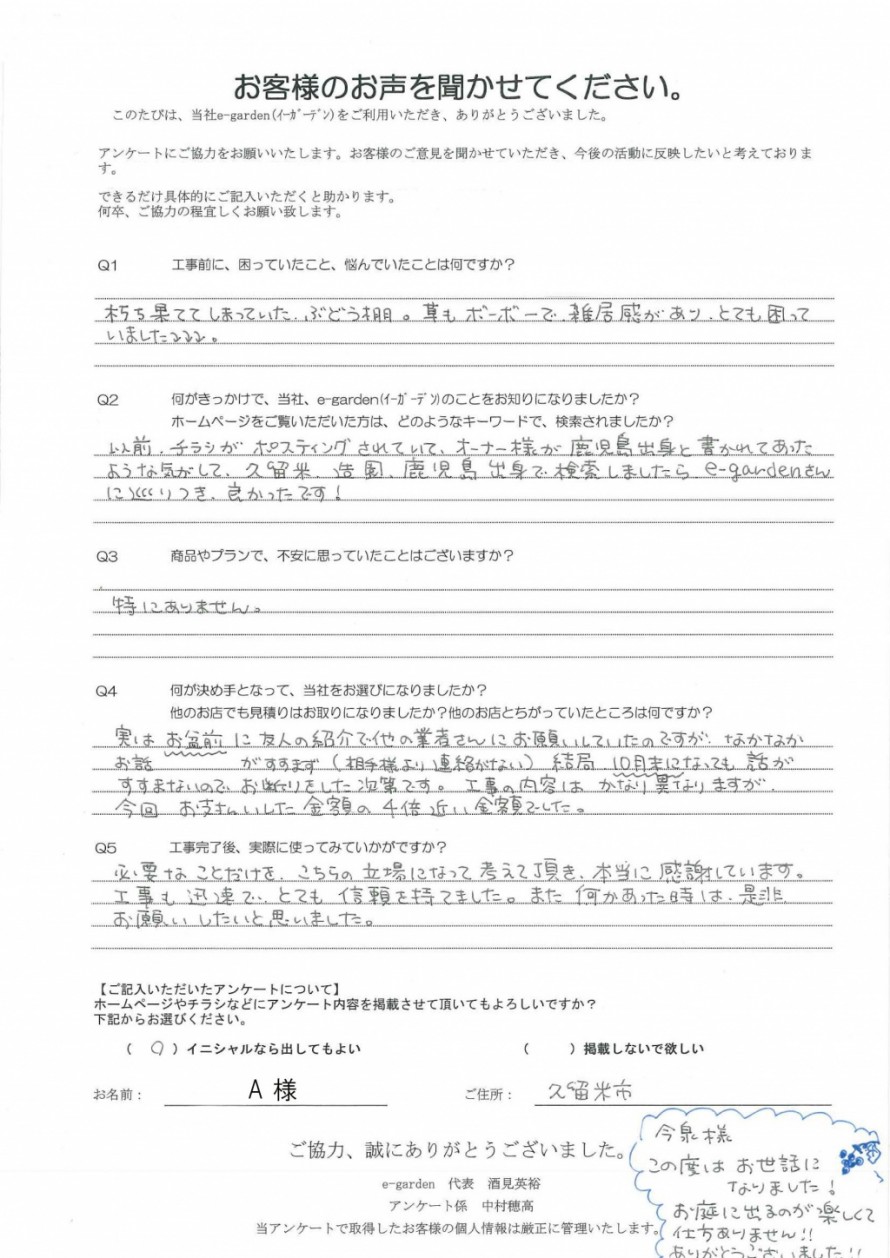 お客様のお声を聞かせてください。
このたびは、当社e-garden(イーガーデン)をご利用いただき、ありがとうございました。
アンケートにご協力をお願いいたします。お客様のご意見を聞かせていただき、今後の活動に反映したいと考えておりま
す。
できるだけ具体的にご記入いただくと助かります。
何卒、ご協力の程宜しくお願い致します。
Q1 工事前に、困っていたこと、悩んでいたことは何ですか?
朽ち果ててしまっていた、ぶどう棚。草もボーボーで、雑居感があり、とても困って
いました
Q2 何がきっかけで、当社、e-garden(イーガーデン)のことをお知りになりましたか?
ホームページをご覧いただいた方は、どのようなキーワードで、検索されましたか?
以前、チラシがポスティングされていて、オーナー様が鹿児島出身と書かれてあった
ような気がして、久留米、造園、鹿児島出身で検索しましたら e-gardenさん
に巡りつき、良かったです!
Q3 商品やプランで、不安に思っていたことはございますか?
特にありません。
Q4 何が決め手となって、当社をお選びになりましたか?
他のお店でも見積りはお取りになりましたか?他のお店とちがっていたところは何ですか?
実はお盆前に友人の紹介で他の業者さんにお願いしていたのですが、なかなか
お話 がすすまず(相手様より連絡がない)結局 10月末になっても話が
すすまないので、お断りをした次第です。工事の内容はかなり異なりますが、
今回 お支払いした金額の4倍近い金額でした。
Q5 工事完了後、実際に使ってみていかがですか?
必要なことだけを、こちらの立場になって考えて頂き、本当に感謝しています。
工事も迅速で、とても信頼を持てました。また何かあった時は、是非
お願いしたいと思いました。
【ご記入いただいたアンケートについて】
ホームページやチラシなどにアンケート内容を掲載させて頂いてもよろしいですか?
下記からお選びください。
( ○ )イニシャルなら出してもよい ( )掲載しないで欲しい
お名前: A 様 ご住所: 久留米市
ご協力、誠にありがとうございました。
e-garden 代表 酒見英裕
アンケート係 中村穂高
当アンケートで取得したお客様の個人情報は厳正に管理いたします。
今泉様
この度は お世話に
なりました!
お庭に出るのが楽しくて
仕方ありません!!
ありがとうございました!!